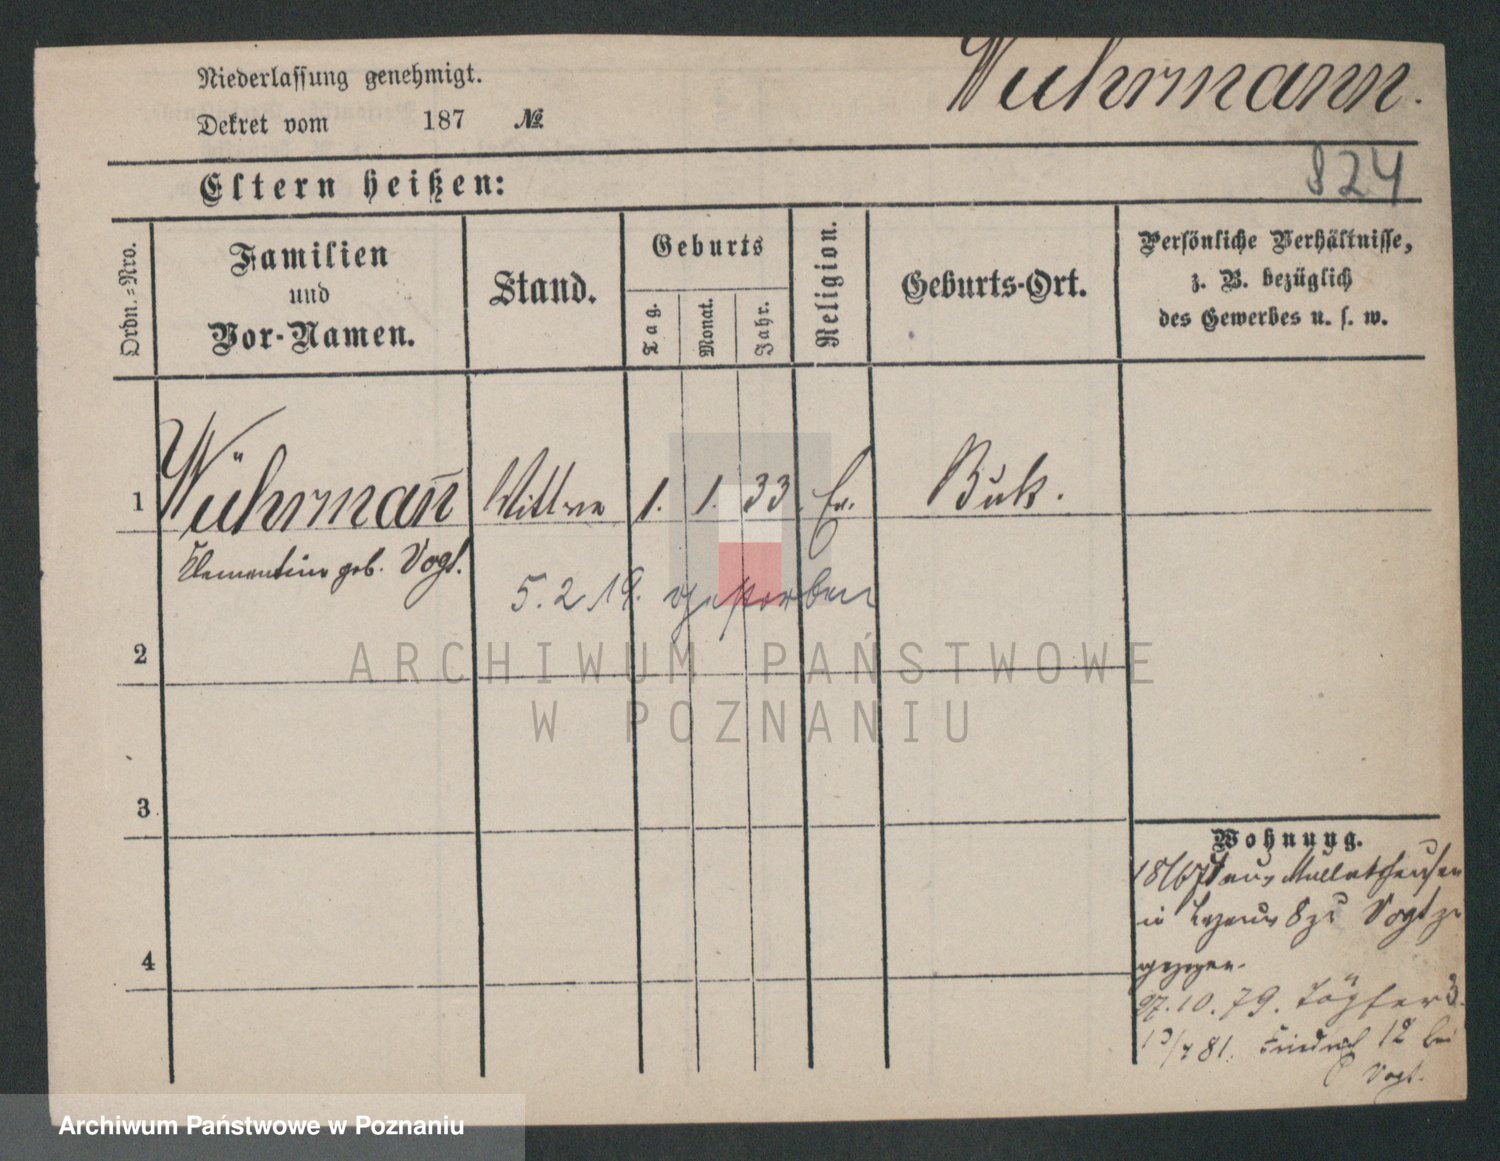 Niederlassung genehmigt.
Wührmann.
Dekret vom 187 №
824
Eltern heißen:
Ordn.-Nro.
Familien
und
Vor-Namen.
Stand.
Geburts
Tag.
Monat.
Jahr.
Religion.
Geburts-Ort.
Persönliche Verhältnisse,
z. B. bezüglich
des Gewerbes u. s. w.
1 Wührman̅ Wittwe 1. 1. 33. Ev. Buk.
Clementine geb. Vogt.
5. 2 19. gestorben
2
ARCHIWUM PAŃSTWOWE
W POZNANIU
3
Wohnung.
aus
in Lazarus 8 zu Vogt
gezogen.
4
27. 10. 79. Töpfer 3.
81. Friedrich 12 bei
Vogt.
Archiwum Państwowe w Poznaniu